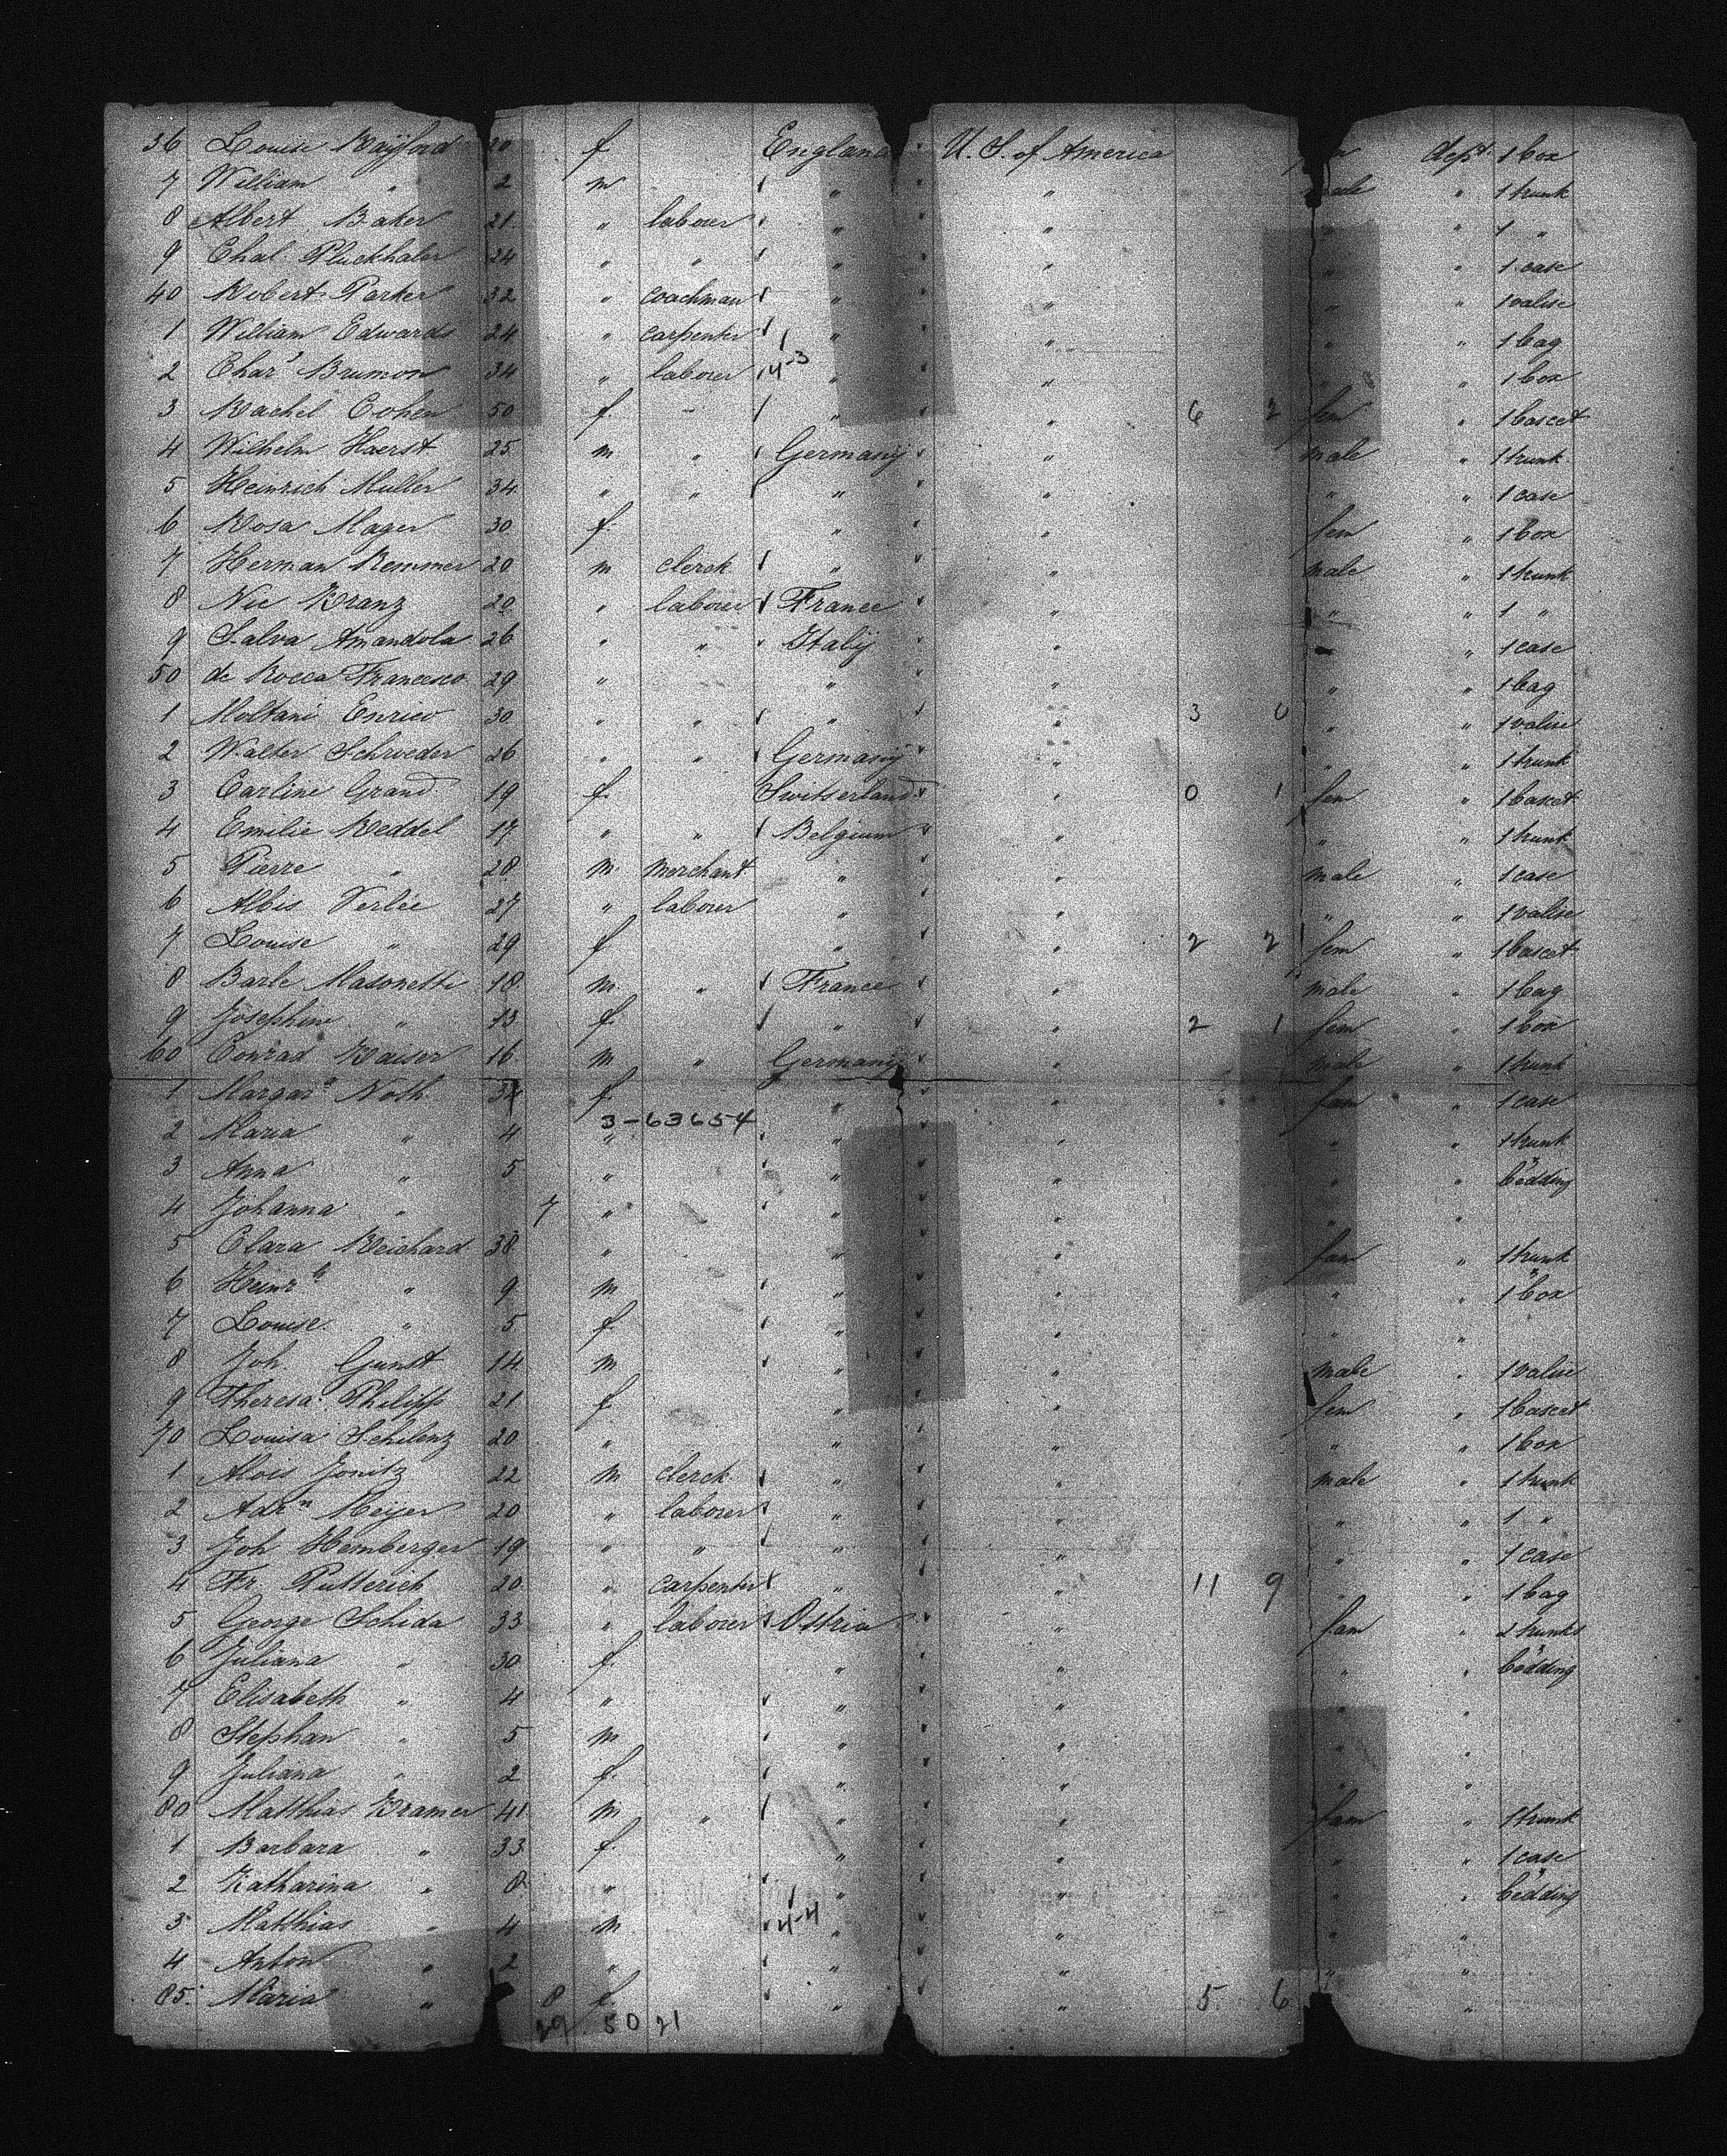 36 Louise Rayford 20 f England U. S. of America fem dept 1 box
7 William " 2 m " " male " 1 trunk
8 Albert Baker 21 " laborer " " " " 1 "
9 Chal. Pluckhaler 24 " " " " " " 1 case
40 Robert Parker 32 " coachman " " " " 1 valise
1 William Edwards 24 " carpenter " " " " 1 bag
2 Chars Brumon 34 " laborer 4-3 " " " " 1 box
3 Rachel Cohen 50 f. " " " 6 2 fem " 1 bascet
4 Wilhelm Hoerst 25 m " Germany " male " 1 trunk
5 Heinrich Muller 34 " " " " " " 1 case
6 Rosa Mager 30 f. " " fem " 1 box
7 Herman Remmer 20 m clerck " " male " 1 trunk
8 Nic Kranz 20 " laborer France " " " 1 "
9 Salva Amandola 26 " " Italy " " " 1 case
50 de Rocca Francesco 29 " " " " " 1 bag
1 Moltani Enrico 30 " " " " 3 0 " " 1 valise
2 Walter Schroeder 26 " " Germany " " " 1 trunk
3 Carline Grand 19 f. Switserland " 0 1 fem " 1 bascet
4 Emilie Reddel 17 " " Belgium " " " 1 trunk
5 Pierre " 28 m. merchant " " male " 1 case
6 Albis Verlie 27 " laborer " " " " 1 valise
7 Louise " 29 f " " 2 2 fem " 1 bascet
8 Barle Masonette 18 m " France " male " 1 bag
9 Josephine " 13 f. " " 2 1 fem " 1 box
60 Conrad Kaiser 16 m " Germany " male " 1 trunk
1 Margar" Noth 34 f. " " fam " 1 case
3-63654
2 Maria " 4 " " " " " 1 trunk
3 Anna " 5 " " " " " bedding
4 Johanna " 7 " " " " "
5 Clara Reichard 38 " " " fam " 1 trunk
6 Heinr" " 9 m " " " " 1 box
7 Louise " 5 f. " " " "
8 Joh. Gunst 14 m " " male " 1 valise
9 Theresa Philipp 21 f " " fem " 1 bascet
70 Louisa Schilenz 20 " " " " " 1 box
1 Alois Jonitz 22 m clerck " " male " 1 trunk
2 Adrn Meijer 20 " laborer " " " " 1 "
3 Joh Hemberger 19 " " " " " " 1 case
4 Fr. Putterich 20 " carpenter " " 11 9 " " 1 bag
5 George Schida 33 " laborer Ostria " fam " 2 trunks
6 Juliana " 30 f. " " " " bedding
7 Elisabeth " 4 " " " "
8 Stephan " 5 m " " " "
9 Juliana " 2 f. " " " "
80 Matthias Kramer 41 m " " " fam " 1 trunk
1 Barbara " 33 f. " " " " 1 case
2 Katharina " 8 " " " " " bedding
3 Matthias " 4 m 4-4 " " "
4 Anton " 2 " " " " "
85 Maria " 8 f. " " 5 6 "
29 50 21